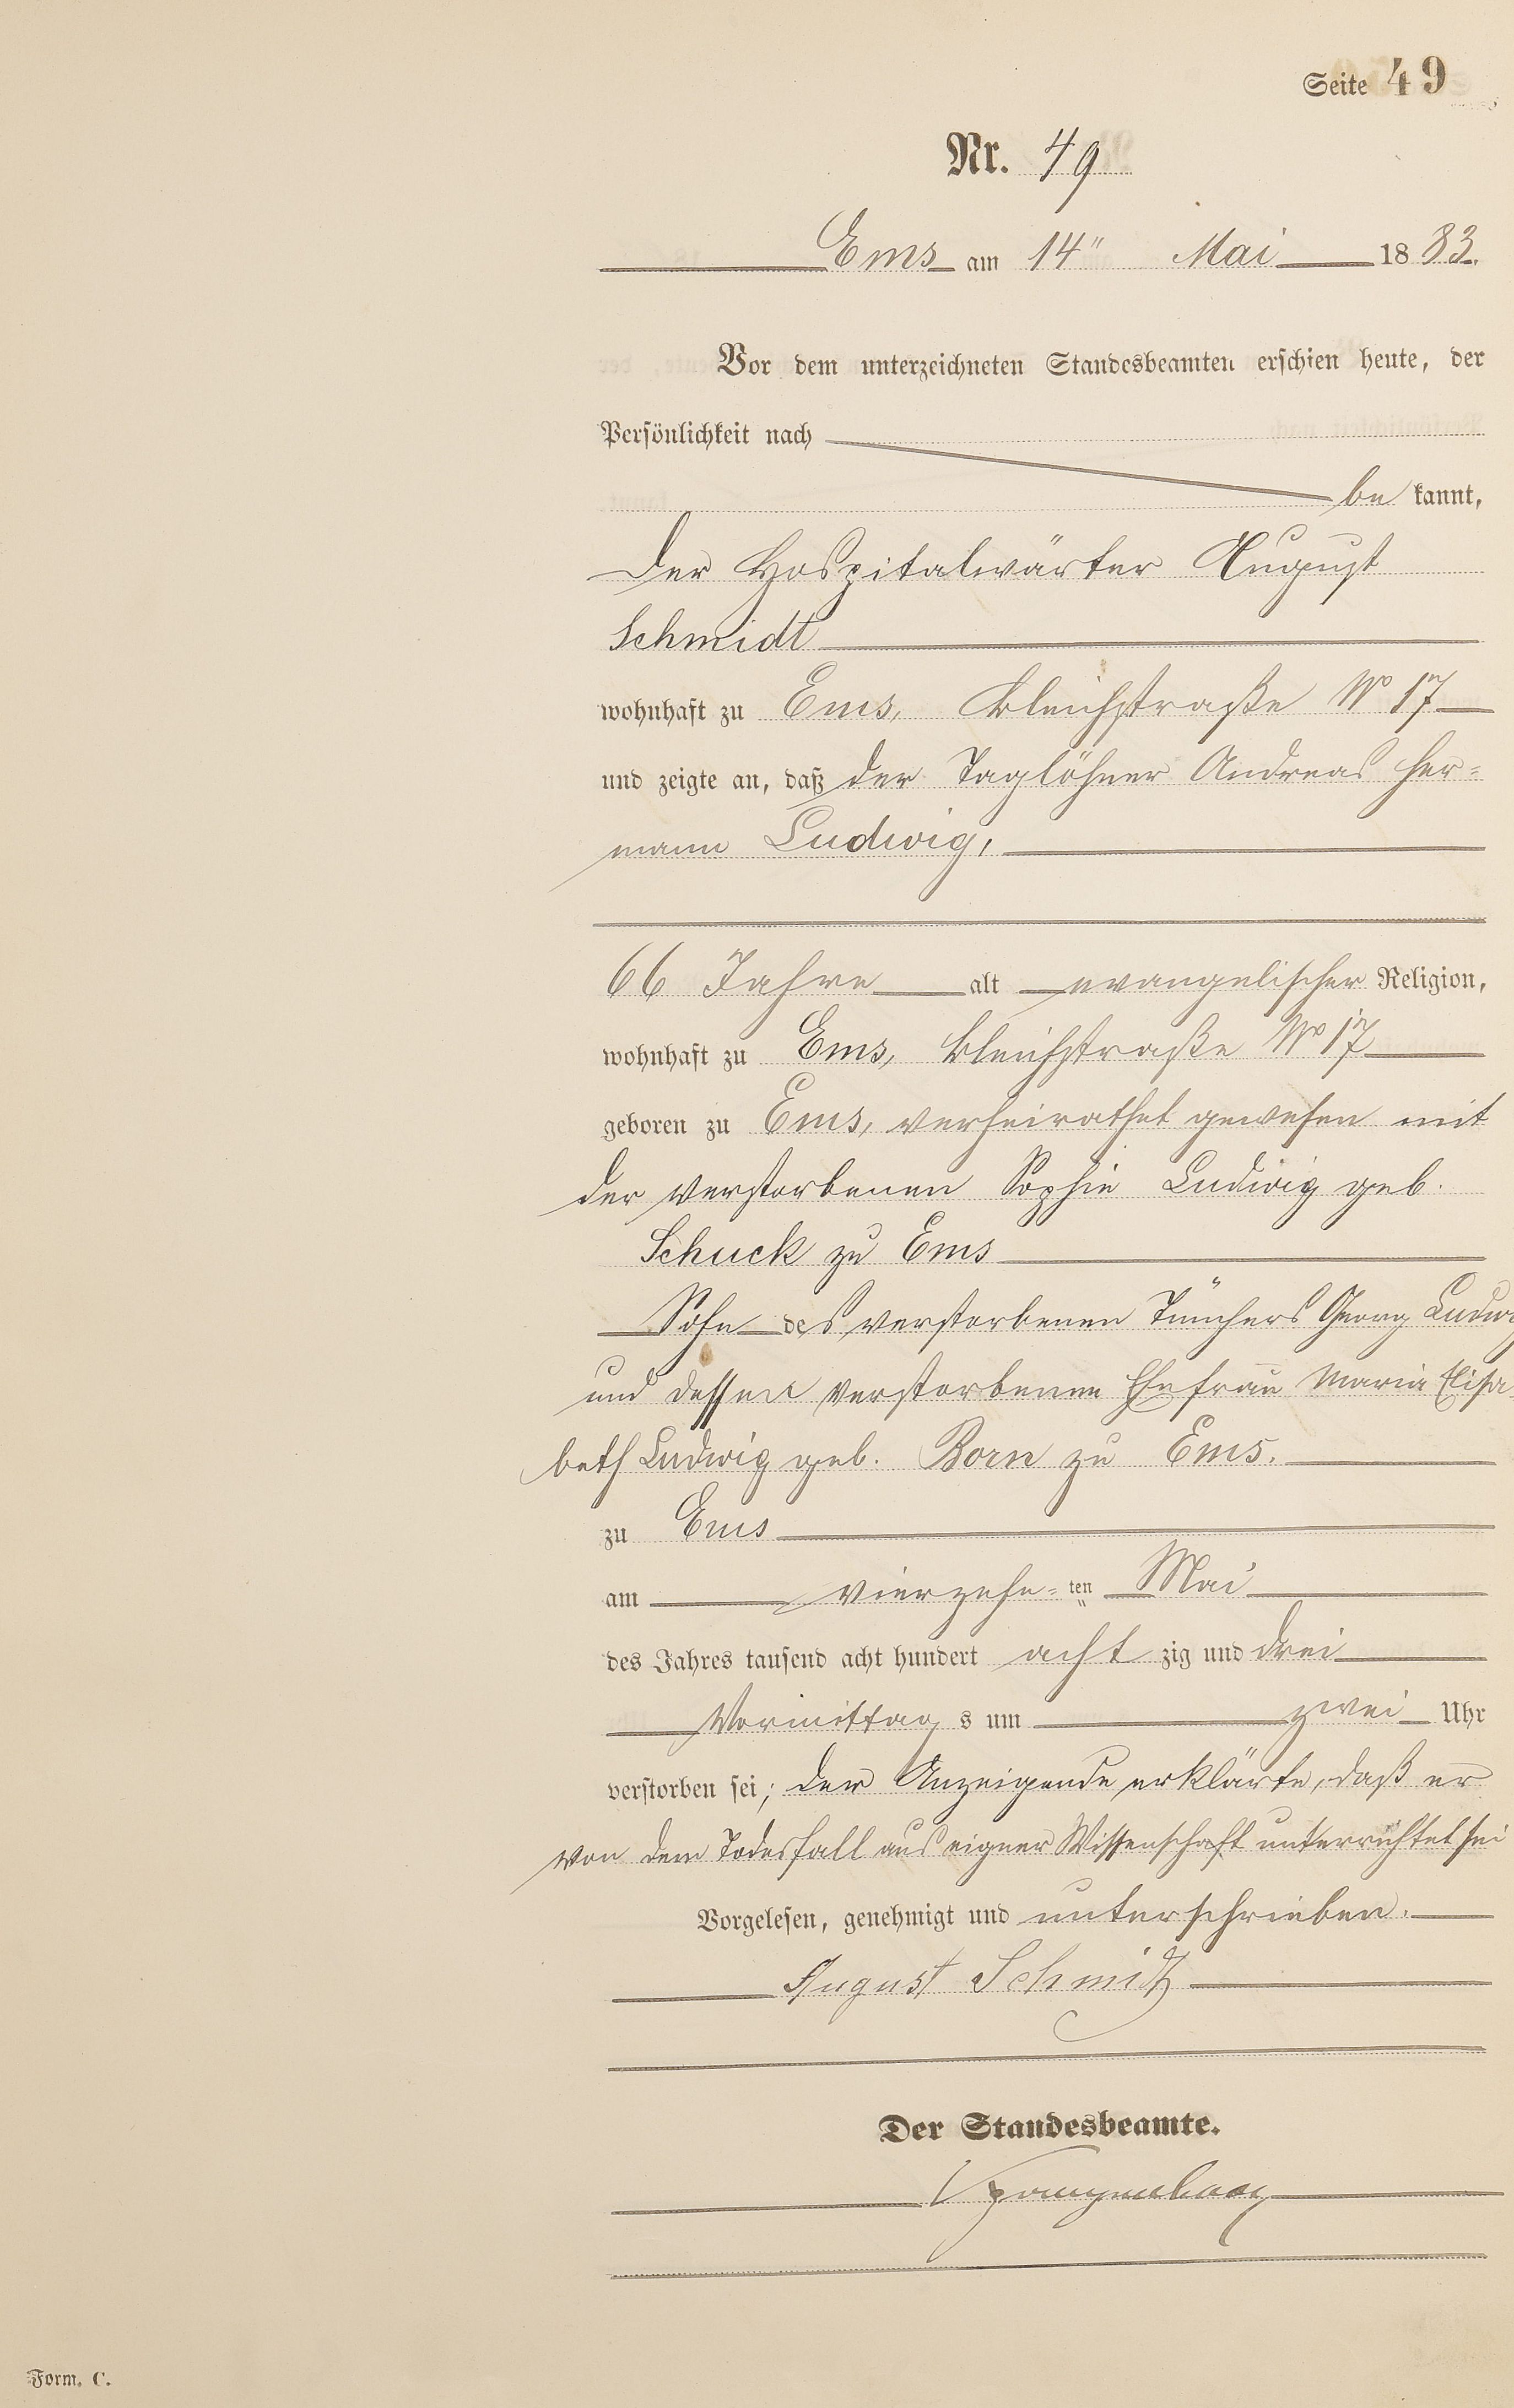 Seite 49
Nr. 49
Ems am 14" Mai 1883.
Vor dem unterzeichneten Standesbeamten erschien heute, der
Persönlichkeit nach
be kannt,
der Hospitalwärter August
Schmidt
wohnhaft zu Ems, Bleichstraße No 17
und zeigte an, daß der Taglöhner Andreas Her=
mann Ludwig,
66 Jahre alt evangelischer Religion,
wohnhaft zu Ems, Bleichstraße No 17
geboren zu Ems, verheirathet gewesen mit
der verstorbenen Sophie Ludwig geb.
Schuck zu Ems
Sohn des verstorbenen Tünchers Georg Ludwig
und dessen verstorbenen Ehefrau Maria Elisa
beth Ludwig geb. Born zu Ems.
zu Ems
am vierzehn= ten Mai
des Jahres tausend acht hundert acht zig und drei
Vormittag s um zwei Uhr
verstorben sei; der Anzeigende erklärte, daß er
von dem Todesfall aus eigner Wissenschaft unterrichtet sei
Vorgelesen, genehmigt und unterschrieben.
August Schmidt
Der Standesbeamte.
Form. C.